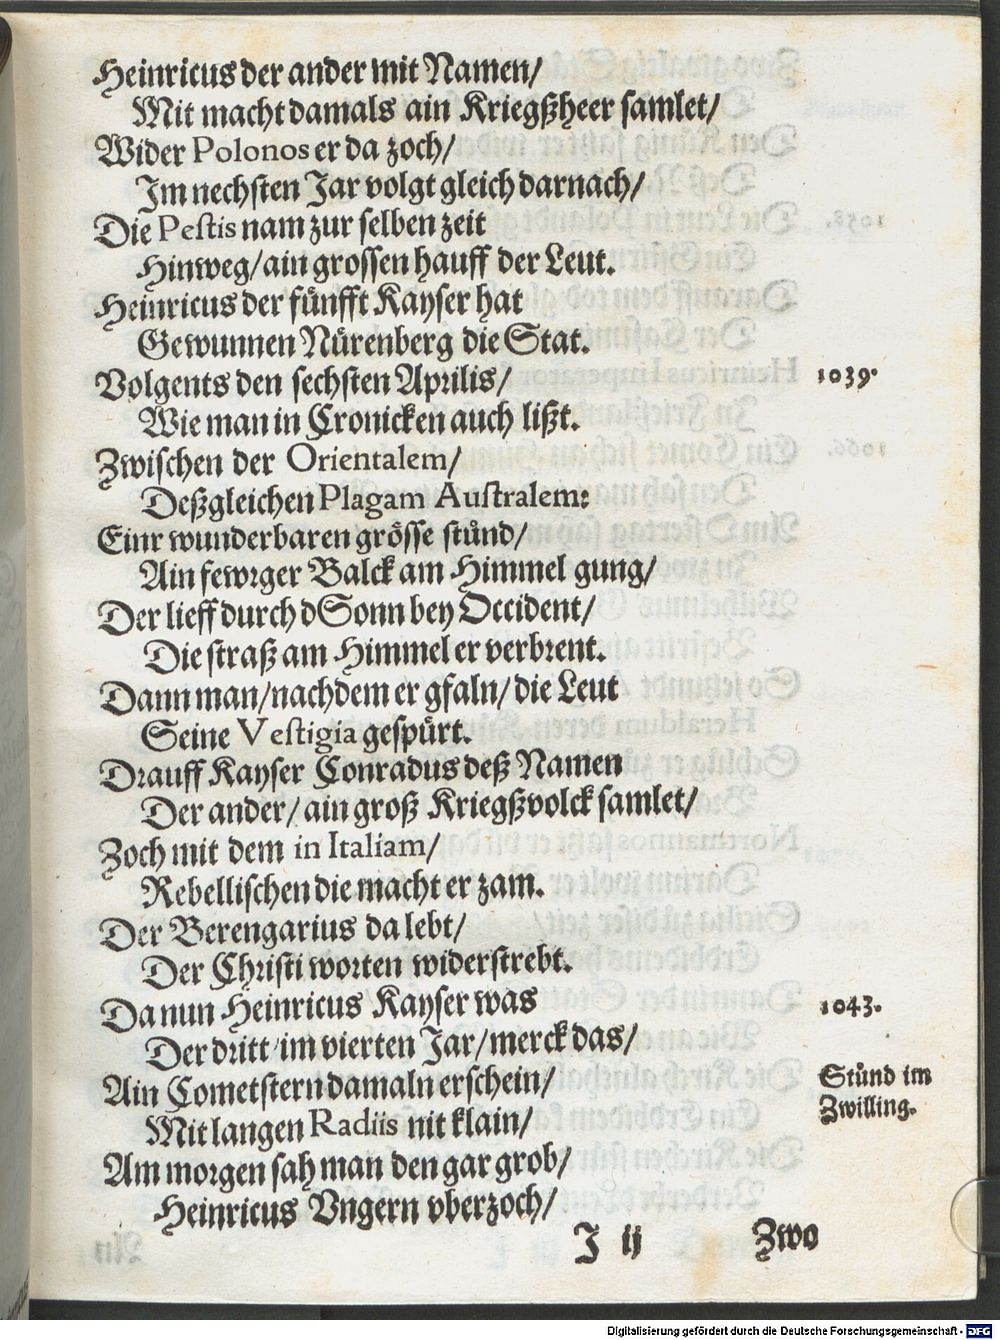 Heinricus der ander mit Namen/
Mit macht damals ain Kriegßheer samlet/
Wider Polonos er da zoch/
Im nechsten Jar volgt gleich darnach/
Die Pestis nam zur selben zeit
Hinweg/ ain grossen hauff der Leut.
Heinricus der fünfft Kayser hat
Gewunnen Nürenberg die Stat.
Volgents den sechsten Aprilis/
1039.
Wie man in Cronicken auch lißt.
Zwischen der Orientalem/
Deßgleichen Plagam Australem:
Einr wunderbaren grösse stůnd/
Ain fewrger Balck am Himmel gung/
Der lieff durch dSonn bey Occident/
Die straß am Himmel er verbrent.
Dann man/ nachdem er gfaln/ die Leut
Seine Vestigia gespürt.
Drauff Kayser Conradus deß Namen
Der ander/ ain groß Kriegßvolck samlet/
Zoch mit dem in Italiam/
Rebellischen die macht er zam.
Der Berengarius da lebt/
Der Christi worten widerstrebt.
Da nun Heinricus Kayser was
1043.
Der dritt/ im vierten Jar/ merck das/
Ain Cometstern damaln erschein/
Stůnd im
Zwilling.
Mit langen Radiis nit klain/
Am morgen sah man den gar grob/
Heinricus Vngern vberzoch/
J ij
Zwo
Digitalisierung gefördert durch die Deutsche Forschungsgemeinschaft - DFG